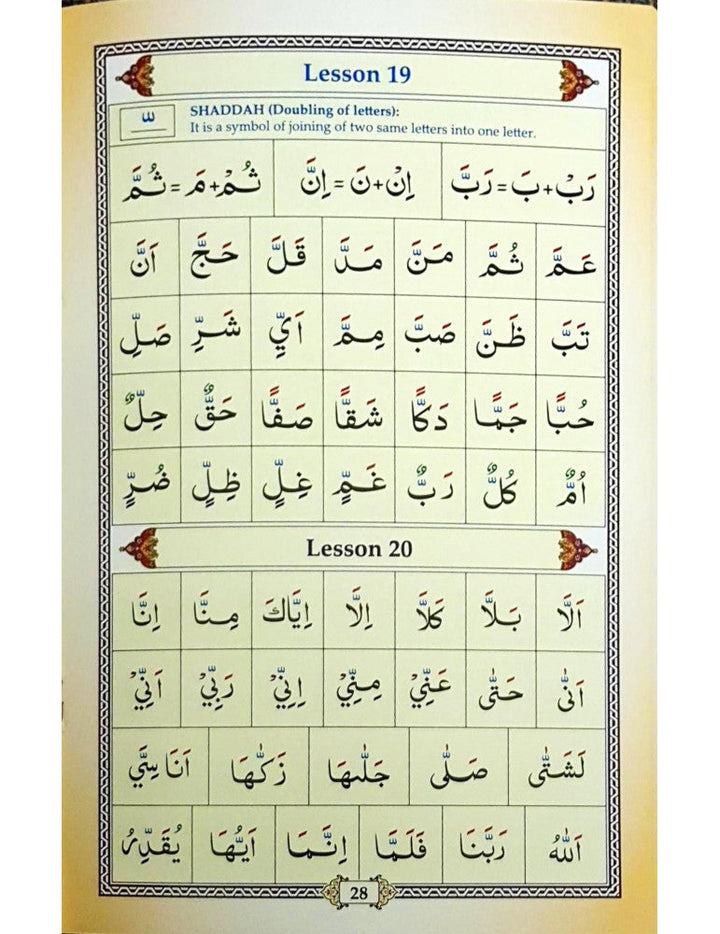 Lesson 19
ـّـ
SHADDAH (Doubling of letters):
It is a symbol of joining of two same letters into one letter.
رَبْ+بَ=رَبَّ اِنْ+نَ=اِنَّ ثُمْ+مَ=ثُمَّ
عَمَّ ثُمَّ مَنَّ مَدَّ قَلَّ حَجَّ اَنَّ
تَبَّ ظَنَّ صَبَّ مِمَّ اَيِّ شَرِّ صَلِّ
حُبًّا جَمًّا دَكًّا شَقًّا صَفًّا حَقٌّ حِلٌّ
اُمٌّ كُلٌّ رَبٌّ غَمٍّ غِلٍّ ظِلٍّ ضُرٍّ
Lesson 20
اَلَّا بَلَّا كَلَّا اِلَّا اِيَّاكَ مِنَّا اِنَّا
اَنّٰى حَتّٰى عَنِّيْ مِنِّيْ اِنِّيْ رَبِّيْ اَنِّيْ
لَشَتّٰى صَلّٰى جَلّٰىهَا زَكّٰىهَا اَنَاسِيَّ
اَللّٰهُ رَبَّنَا فَلَمَّا اِنَّمَا اَيُّهَا يُقَدِّرُ
28